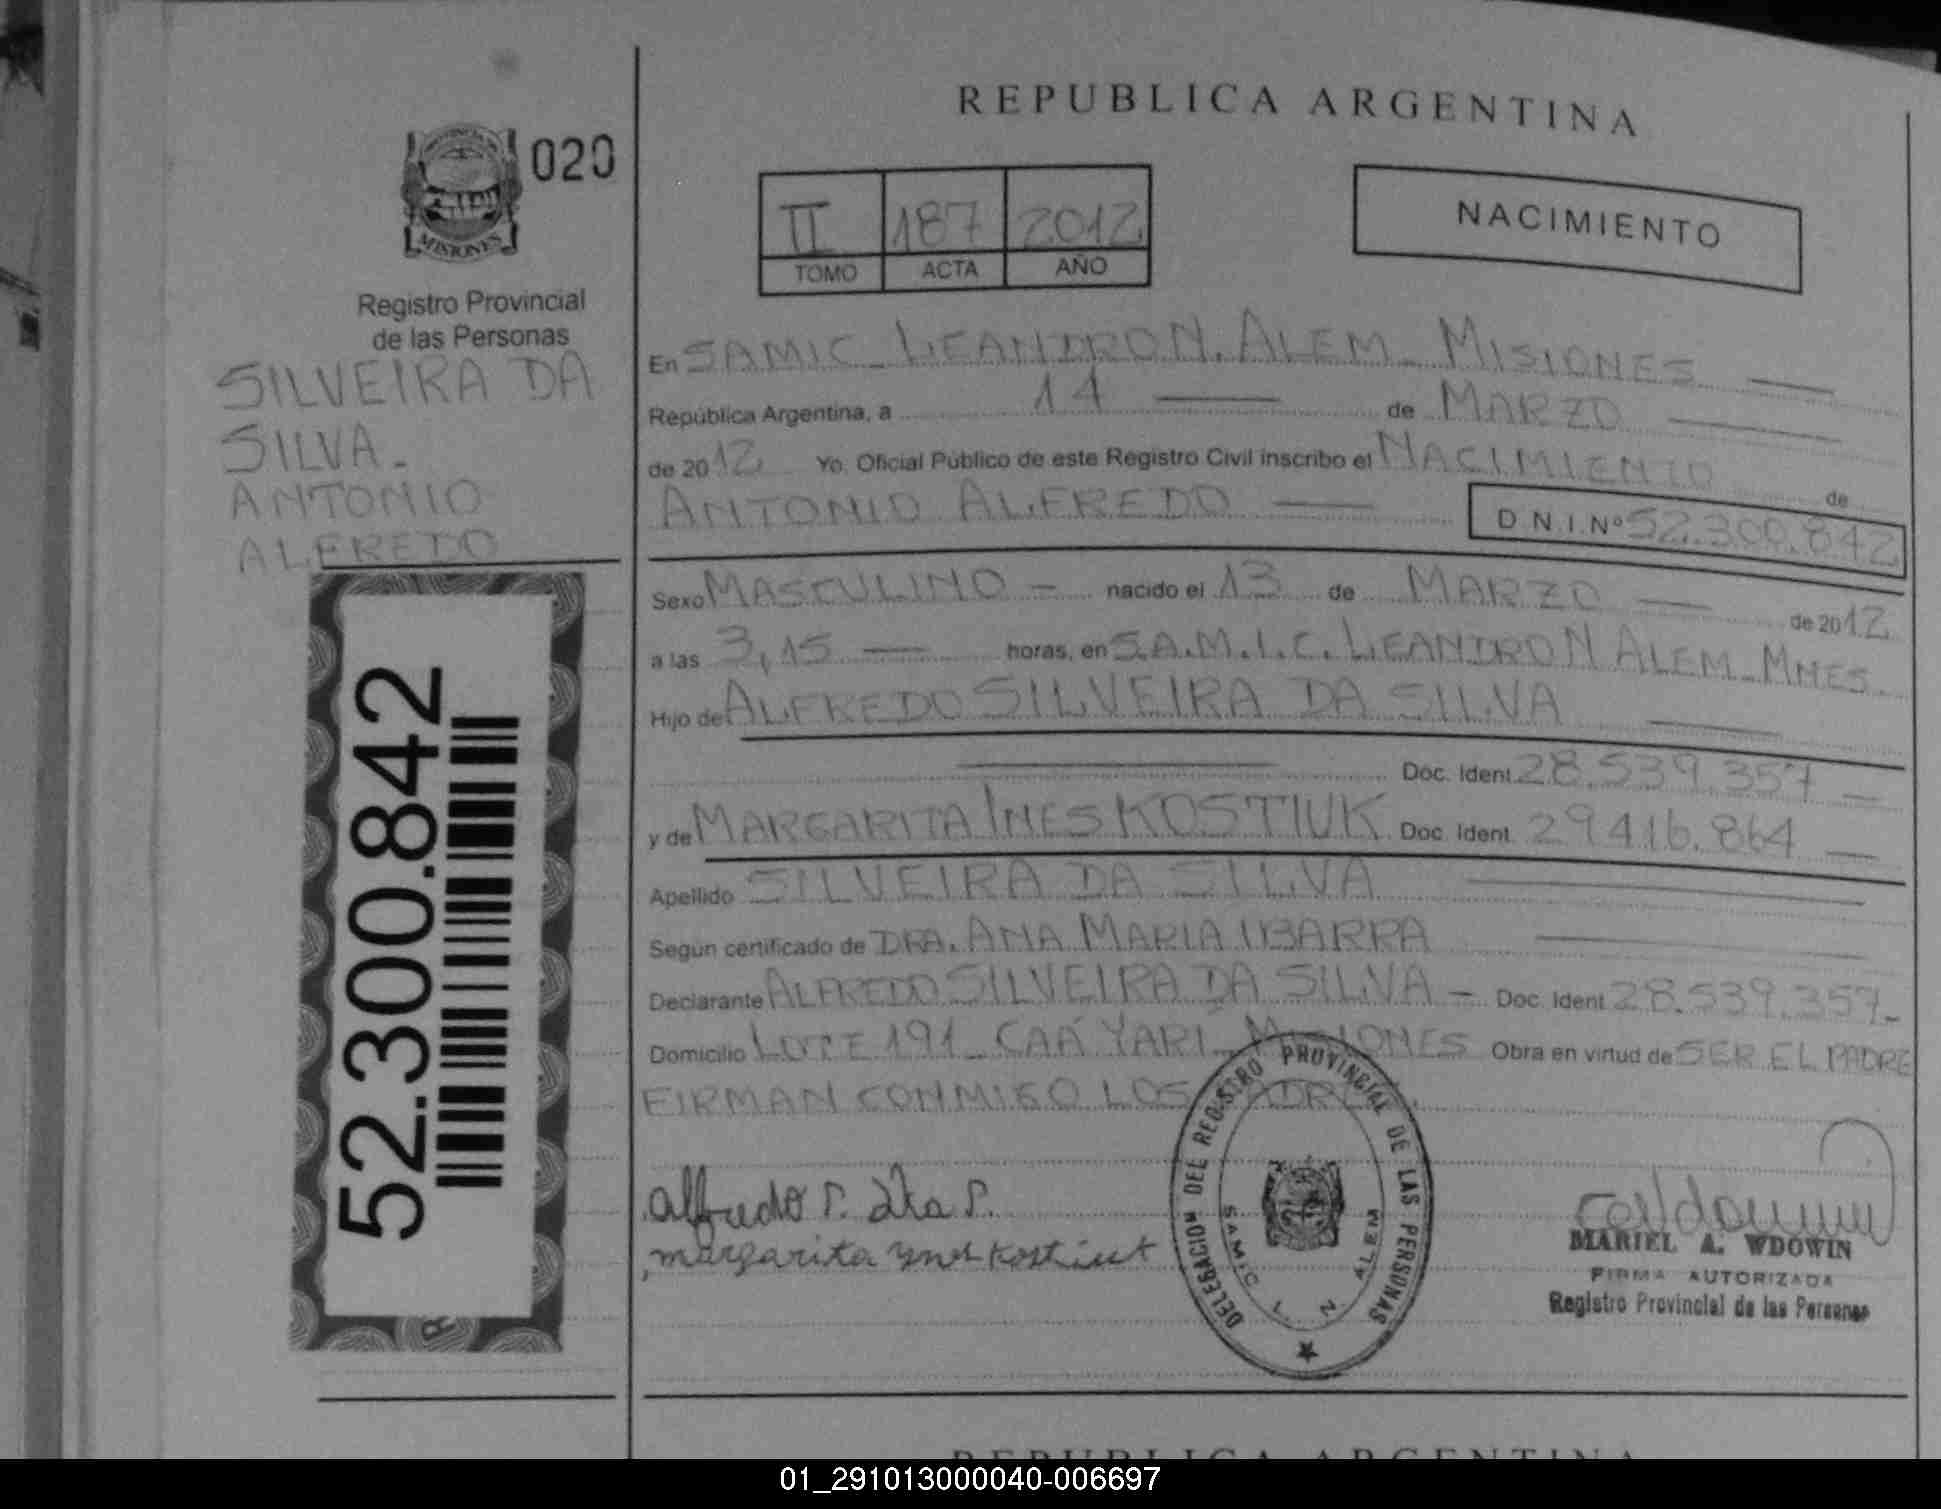 REPUBLICA ARGENTINA
020
MISIONES
Registro Provincial
de las Personas
SILVEIRA DA
SILVA.
ANTONIO
ALFREDO
52.300.842
II 187 2012
TOMO ACTA AÑO
NACIMIENTO
En SAMIC_LEANDRO N. ALEM_MISIONES
República Argentina, a 14 de MARZO
de 2012 Yo, Oficial Público de este Registro Civil inscribo el NACIMIENTO de
ANTONIO ALFREDO D.N.I.Nº 52.300.842
Sexo MASCULINO - nacido el 13 de MARZO de 2012
a las 3,15 horas, en S.A.M.I.C. LEANDRO N ALEM_MNES.
Hijo de ALFREDO SILVEIRA DA SILVA
Doc. Ident. 28.539.357
y de MARGARITA INES KOSTIUK Doc. Ident. 29.416.864
Apellido SILVEIRA DA SILVA
Según certificado de DRA. ANA MARIA IBARRA
Declarante ALFREDO SILVEIRA DA SILVA - Doc. Ident. 28.539.357.
Domicilio LOTE 191_CAÁ YARI_MISIONES Obra en virtud de SER EL PADRE
FIRMAN CONMIGO LOS PADRES.
alfredo S. da S.
margarita ynes kostiuk
DELEGACION DEL REGISTRO PROVINCIAL DE LAS PERSONAS
SAMIC L N ALEM
MARIEL A. WDOWIN
FIRMA AUTORIZADA
Registro Provincial de las Personas
REPUBLICA ARGENTINA
01_291013000040-006697